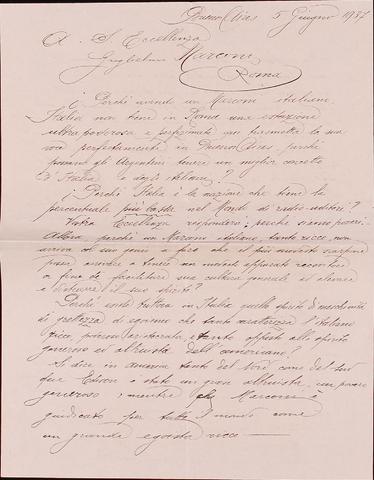 Buenos Aires 5 Giugno 1937
A. S. Eccellenza
Guglielmo Marconi
Roma
¿Perchè avendo un Marconi italiano
Italia non tiene in Roma una estazione
ultra poderosa e perfezionata qui trasmetta la sua
voce perfettamente in Buenos Aires, perchè
possano gli Argentini tenere un miglior concetto
d'Italia e degli italiani?
¿Perchè Italia è la nazione che tiene la
percentuale più bassa nel Mondo di radio-uditori?
Vostra Eccellenza risponderà: perchè siamo poveri.
Allora perchè un Marconi italiano, tanto ricco, non
che il più
possa
a fine da facilitare sua cultura generale ed elevare
e distruere il suo spirito?
Perchè esiste tuttora in Italia quello spirito di meschinità
di grettezza di egoismo che tanto caratterizza l'italiano
ricco, e tanto opposto allo spirito
generoso ed altruista dell'americano?
Si dice in America tanto del Nord come del Sud
que Edison è stato un gran altruista, un
generoso; mentre Marconi è
giudicato per tutto il mondo come
un grande egoista